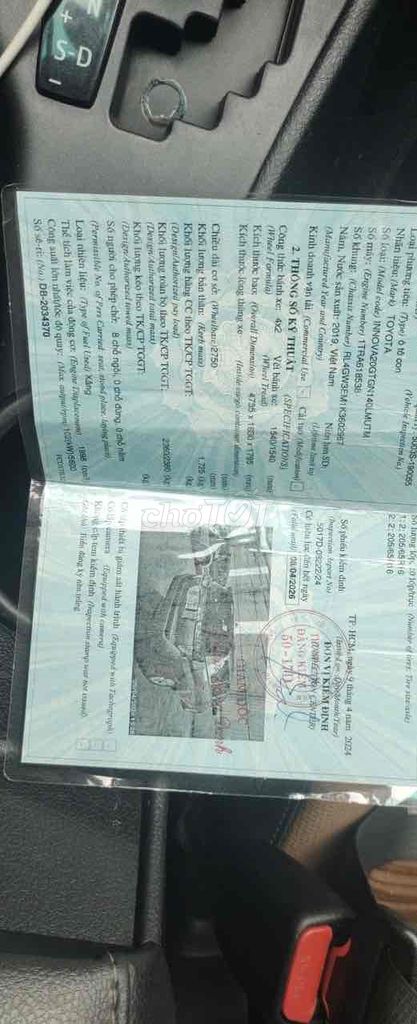 N
+
S-D
-
Loại phương tiện: (Type) ô tô con
Nhãn hiệu: (Mark) TOYOTA
Số loại: (Model code) INNOVA20GTGN140LMUTM
Số máy: (Engine Number) 1TRA618538
Số khung: (Chassis Number) RL4GW3EM1K3602967
Năm, Nước sản xuất: 2019, Việt Nam
(Manufactured Year and Country)
Kinh doanh vận tải (Commercial Use)
Cải tạo (Modification)
2. THÔNG SỐ KỸ THUẬT (SPECIFICATIONS)
Công thức bánh xe: 4x2 Vết bánh xe: 1540/1540 (mm)
(Wheel Formula) (Wheel Tread)
Kích thước bao: (Overall Dimension) 4735 x 1830 x 1795 (mm)
Kích thước lòng thùng xe
Chiều dài cơ sở: (Wheelbase) 2750 (mm)
Khối lượng bản thân: (Kerb mass) 1,725 (kg)
Khối lượng hàng CC theo TK/CP TGGT: (kg)
(Design/Authorized pay load)
Khối lượng toàn bộ theo TK/CP TGGT: (kg)
(Design/Authorized total mass)
Khối lượng kéo theo TK/CP TGGT: (kg)
(Design/Authorized towed mass)
Số người cho phép chở: 8 chỗ ngồi, 0 chỗ đứng, 0 chỗ nằm
(Permissible No. of Pers Carried: seat, stood place, laying place)
Loại nhiên liệu: (Type of Fuel Used) Xăng
Thể tích làm việc của động cơ: (Engine Displacement) 1998 (cm3)
Công suất lớn nhất/tốc độ quay: (Max. output/rpm) 102(kW)/5600
Số sê-ri: (No.) DB-2034370
(Number of tires; Tire size/axle)
1: 2; 205/65R16
2: 2; 205/65R16
Số phiếu kiểm định
(Inspection Report No)
5017D-09222/24
Có hiệu lực đến hết ngày
(Valid until) 08/04/2026
TP. HCM, ngày 9 tháng 4 năm 2024
ĐƠN VỊ KIỂM ĐỊNH
ĐĂNG KIỂM
50-17D
GIÁM ĐỐC
chợTỐT
(Equipped with Tachograph)
(Equipped with camera)
(Inspection stamp was not issued)